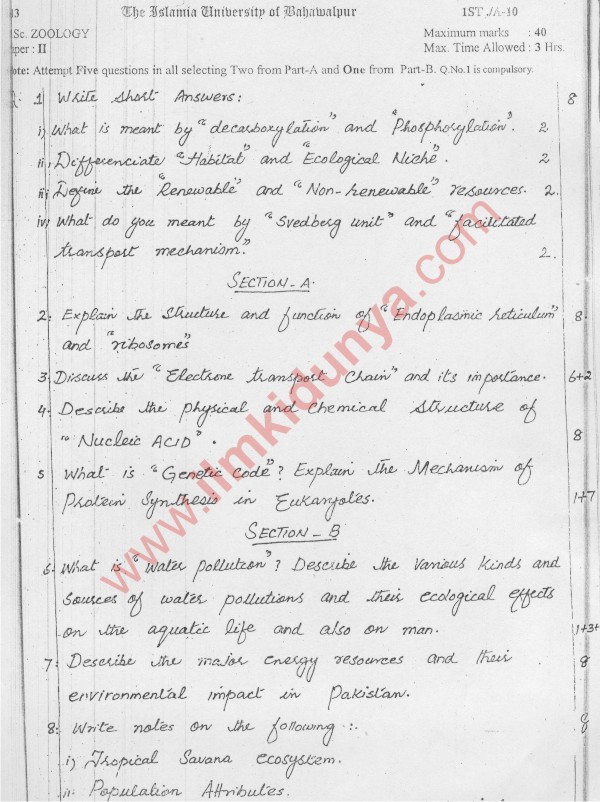 43 The Islamia University of Bahawalpur 1ST.JA-10
Sc. ZOOLOGY Maximum marks : 40
per : II Max. Time Allowed : 3 Hrs.
ote: Attempt Five questions in all selecting Two from Part-A and One from Part-B. Q.No.1 is compulsory.
1 Write short Answers: 8
i) What is meant by "decarboxylation" and "Phosphorylation". 2
ii) Differenciate "Habitat" and "Ecological Niche". 2
iii) Define the "Renewable" and "Non-renewable" resources. 2.
iv) What do you meant by "Svedberg unit" and "facilitated
transport mechanism." 2.
SECTION-A.
2. Explain the Structure and function of "Endoplasmic reticulum" 8.
and "ribosomes"
3. Discuss the "Electrone transport Chain" and its importance. 6+2
4. Describe the physical and chemical structure of
"Nucleic ACID". 8
5 What is "Genetic Code"? Explain the Mechanism of
Protein Synthesis in Eukaryotes. 1+7
SECTION-B
6. What is "Water pollution"? Describe the various kinds and
sources of water pollutions and their ecological effects
on the aquatic life and also on man. 1+3+
7. Describe the major energy resources and their 8
environmental impact in Pakistan.
8. Write notes on the following :- 8
i) Tropical Savana ecosystem.
ii- Population Attributes.
www.ilmkidunya.com